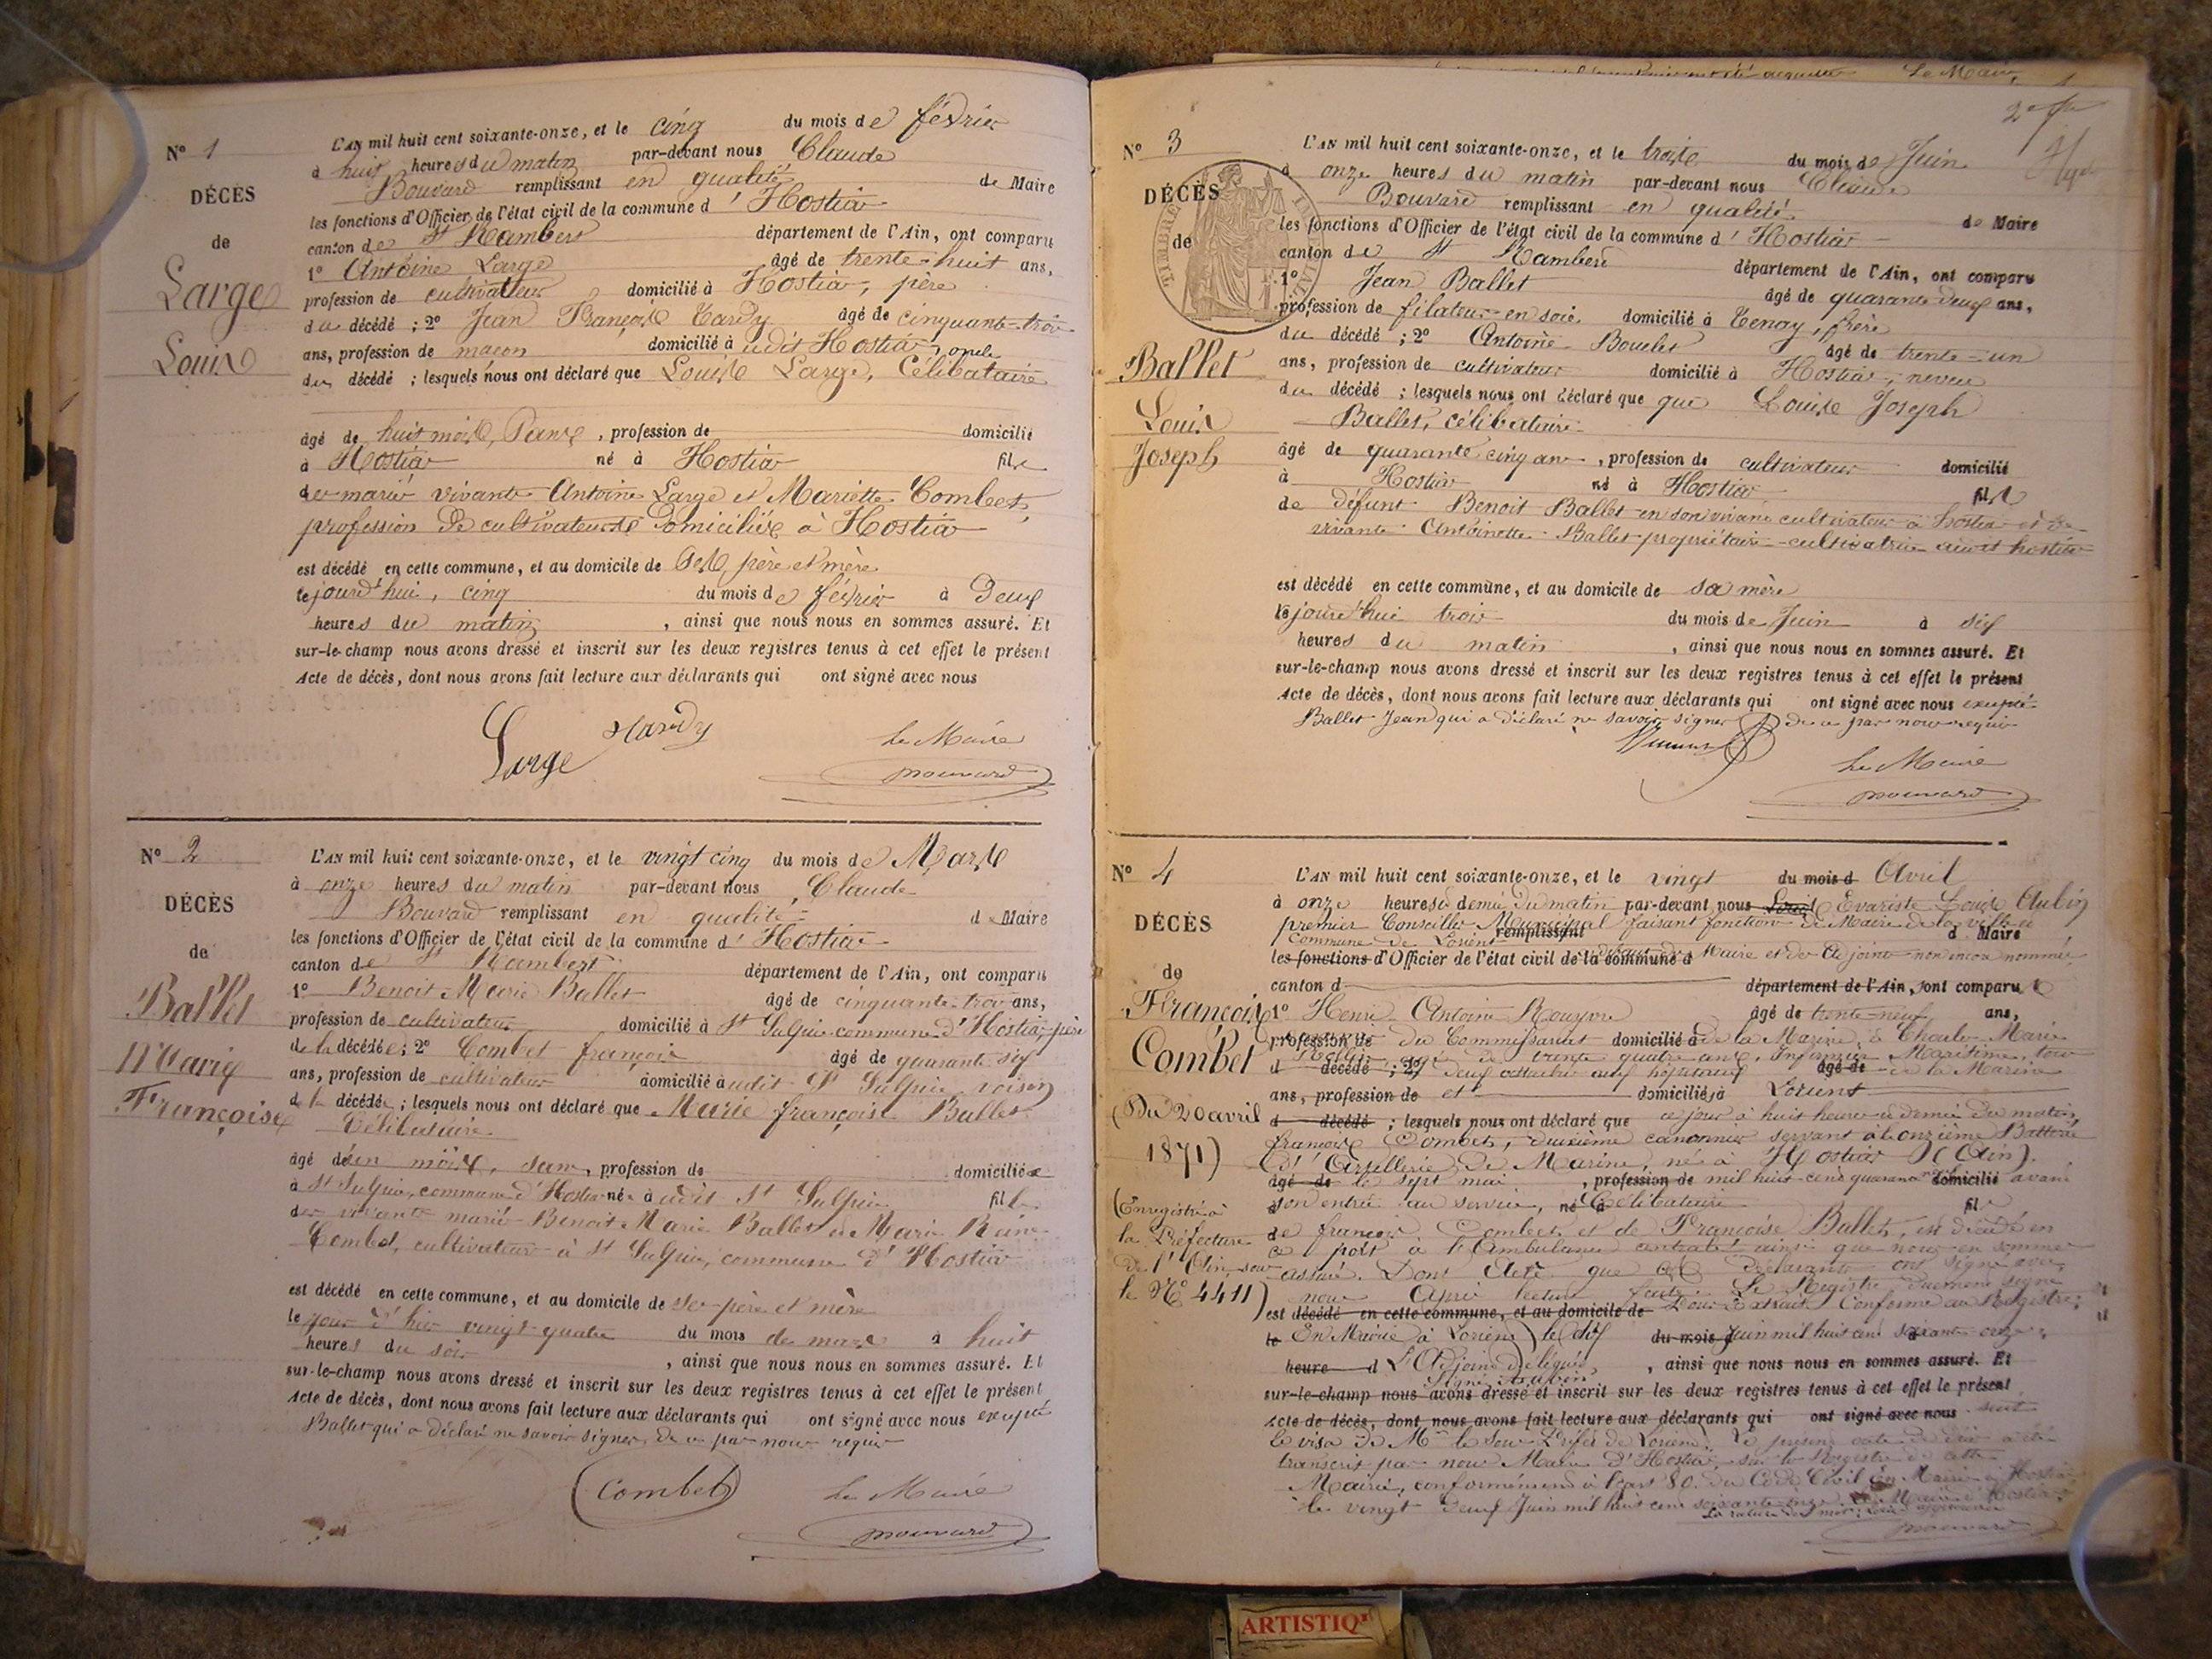 N° 1
DÉCÈS
de
Large
Louis
L'AN mil huit cent soixante-onze, et le cinq du mois de février
à huit heures du matin par-devant nous Claude
Bouvard remplissant en qualité de Maire
les fonctions d'Officier de l'état civil de la commune d'Hostiaz
canton de St Rambert département de l'Ain, ont comparu
1° Antoine Large âgé de trente-huit ans,
profession de cultivateur domicilié à Hostiaz, père
du décédé ; 2° Jean François Tardy âgé de cinquante-trois
ans, profession de maçon domicilié à udit Hostiaz, oncle
du décédé ; lesquels nous ont déclaré que Louis Large, Célibataire
âgé de huit mois, sans, profession de domicilié
à Hostiaz né à Hostiaz fils
des mariés vivants Antoine Large et Mariette Combet,
profession de cultivateurs domiciliés à Hostiaz
est décédé en cette commune, et au domicile de ses père et mère
le jourd'hui, cinq du mois de février à deux
heures du matin, ainsi que nous nous en sommes assuré. Et
sur-le-champ nous avons dressé et inscrit sur les deux registres tenus à cet effet le présent
Acte de décès, dont nous avons fait lecture aux déclarants qui ont signé avec nous
Large Tardy Le Maire
Bouvard
N° 2
DÉCÈS
de
Ballet
Marie
Françoise
L'AN mil huit cent soixante-onze, et le vingt cinq du mois de Mars
à onze heures du matin par-devant nous Claude
Bouvard remplissant en qualité de Maire
les fonctions d'Officier de l'état civil de la commune d'Hostiaz
canton de St Rambert département de l'Ain, ont comparu
1° Benoit Marie Ballet âgé de cinquante-trois ans,
profession de cultivateur domicilié à St Sulpice commune d'Hostiaz, père
de la décédée ; 2° Combet françois âgé de quarante six
ans, profession de cultivateur domicilié à udit St Sulpice voisin
de la décédée ; lesquels nous ont déclaré que Marie françoise Ballet
Célibataire
âgé de un mois, sans, profession de domiciliée
à St Sulpice, commune d'Hostiaz née à udit St Sulpice fille
des vivants mariés Benoit Marie Ballet et Marie
Combet, cultivateurs à St Sulpice, commune d'Hostiaz
est décédé en cette commune, et au domicile de ses père et mère
le jour d'hier vingt-quatre du mois de mars à huit
heures du soir, ainsi que nous nous en sommes assuré. Et
sur-le-champ nous avons dressé et inscrit sur les deux registres tenus à cet effet le présent
Acte de décès, dont nous avons fait lecture aux déclarants qui ont signé avec nous excepté
Ballet qui a déclaré ne savoir signer de ce par nous requis
Combet Le Maire
Bouvard
Le Maire,
N° 3
DÉCÈS
de
TIMBRE
Ballet
Louis
Joseph
L'AN mil huit cent soixante-onze, et le trois du mois de Juin
à onze heures du matin par-devant nous Claude
Bouvard remplissant en qualité de Maire
les fonctions d'Officier de l'état civil de la commune d'Hostiaz
canton de St Rambert département de l'Ain, ont comparu
1° Jean Ballet âgé de quarante deux ans,
profession de filateur en soie domicilié à Tenay, frère
du décédé ; 2° Antoine Boulet âgé de trente-un
ans, profession de cultivateur domicilié à Hostiaz, neveu
du décédé ; lesquels nous ont déclaré que que Louis Joseph
Ballet, célibataire
âgé de quarante cinq ans, profession de cultivateur domicilié
à Hostiaz né à Hostiaz fils
de défunt Benoit Ballet en son vivant cultivateur à hostiaz et de
vivante Antoinette Ballet propriétaire-cultivatrice audit hostiaz
est décédé en cette commune, et au domicile de sa mère
le jourd'hui trois du mois de Juin à six
heures du matin, ainsi que nous nous en sommes assuré. Et
sur-le-champ nous avons dressé et inscrit sur les deux registres tenus à cet effet le présent
Acte de décès, dont nous avons fait lecture aux déclarants qui ont signé avec nous excepté
Ballet Jean qui a déclaré ne savoir signer de ce par nous requis
Le Maire
Bouvard
N° 4
DÉCÈS
de
François
Combet
(Du 20 avril
1871)
(Enregistré à
la Préfecture
de l'Ain, sous
le N° 4411)
L'AN mil huit cent soixante-onze, et le vingt du mois d Avril
à onze heures et demie du matin par-devant nous Louis Evariste Louis Aubin
premier Conseiller Municipal faisant fonction de Maire de la ville et
Commune de Lorient remplissant d Maire
les fonctions d'Officier de l'état civil de la commune d Maire et des Adjoints non encore nommés
canton d département de l'Ain, sont comparu
1° Henri Antoine Rouyvre âgé de trente-neuf ans,
profession de du Commissariat domicilié à de la Marine, & Charles Marie
âgé de trente quatre ans, Infirmier Maritime, tous
d décédé ; 2° deux attachés aux hôpitaux âgé de de la Marine
ans, profession de et domicilié à Lorient
d décédé ; lesquels nous ont déclaré que ce jour à huit heures et demie du matin,
françois Combet, deuxième canonnier servant à la onzième Batterie
d'Artillerie de Marine, né à Hostiaz (Ain).
âgé de le sept mai, profession de mil huit-cent quarante domicilié avant
son entrée au service, né à Célibataire fils
de françois Combet et de Françoise Ballet, est décédé en
ce port à l'Ambulance centrale ainsi que nous en sommes
assuré. Dont Acte que les déclarants ont signé avec
nous Après lecture faite. Le Registre dûment signé
est décédé en cette commune, et au domicile de Pour Extrait Conforme au Registre:
le En Mairie à Lorient le dix du mois Juin mil huit cent soixante onze.
heure d L'Adjoint délégué, ainsi que nous nous en sommes assuré. Et
Signé Aubin
sur-le-champ nous avons dressé et inscrit sur les deux registres tenus à cet effet le présent
Acte de décès, dont nous avons fait lecture aux déclarants qui ont signé avec nous suit
le visa de Mr le Sous-Préfet de Lorient. Le présent acte de décès a été
transcrit par nous Maire d'Hostiaz, sur le Registre de cette
Mairie, conformément à l'art 80. du Code Civil En Mairie à Hostiaz
le vingt deux Juin mil huit cent soixante onze. Le Maire d'Hostiaz
Bouvard
ARTISTIQ